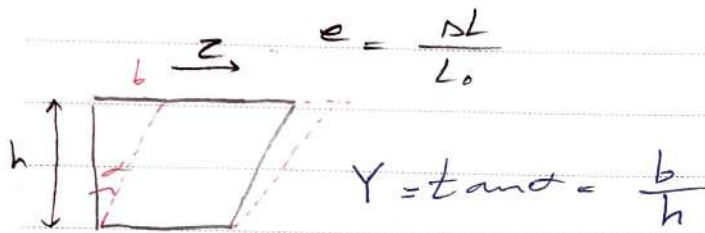 e = ΔL / L₀
b τ
h
γ
Y = tanσ = b / h